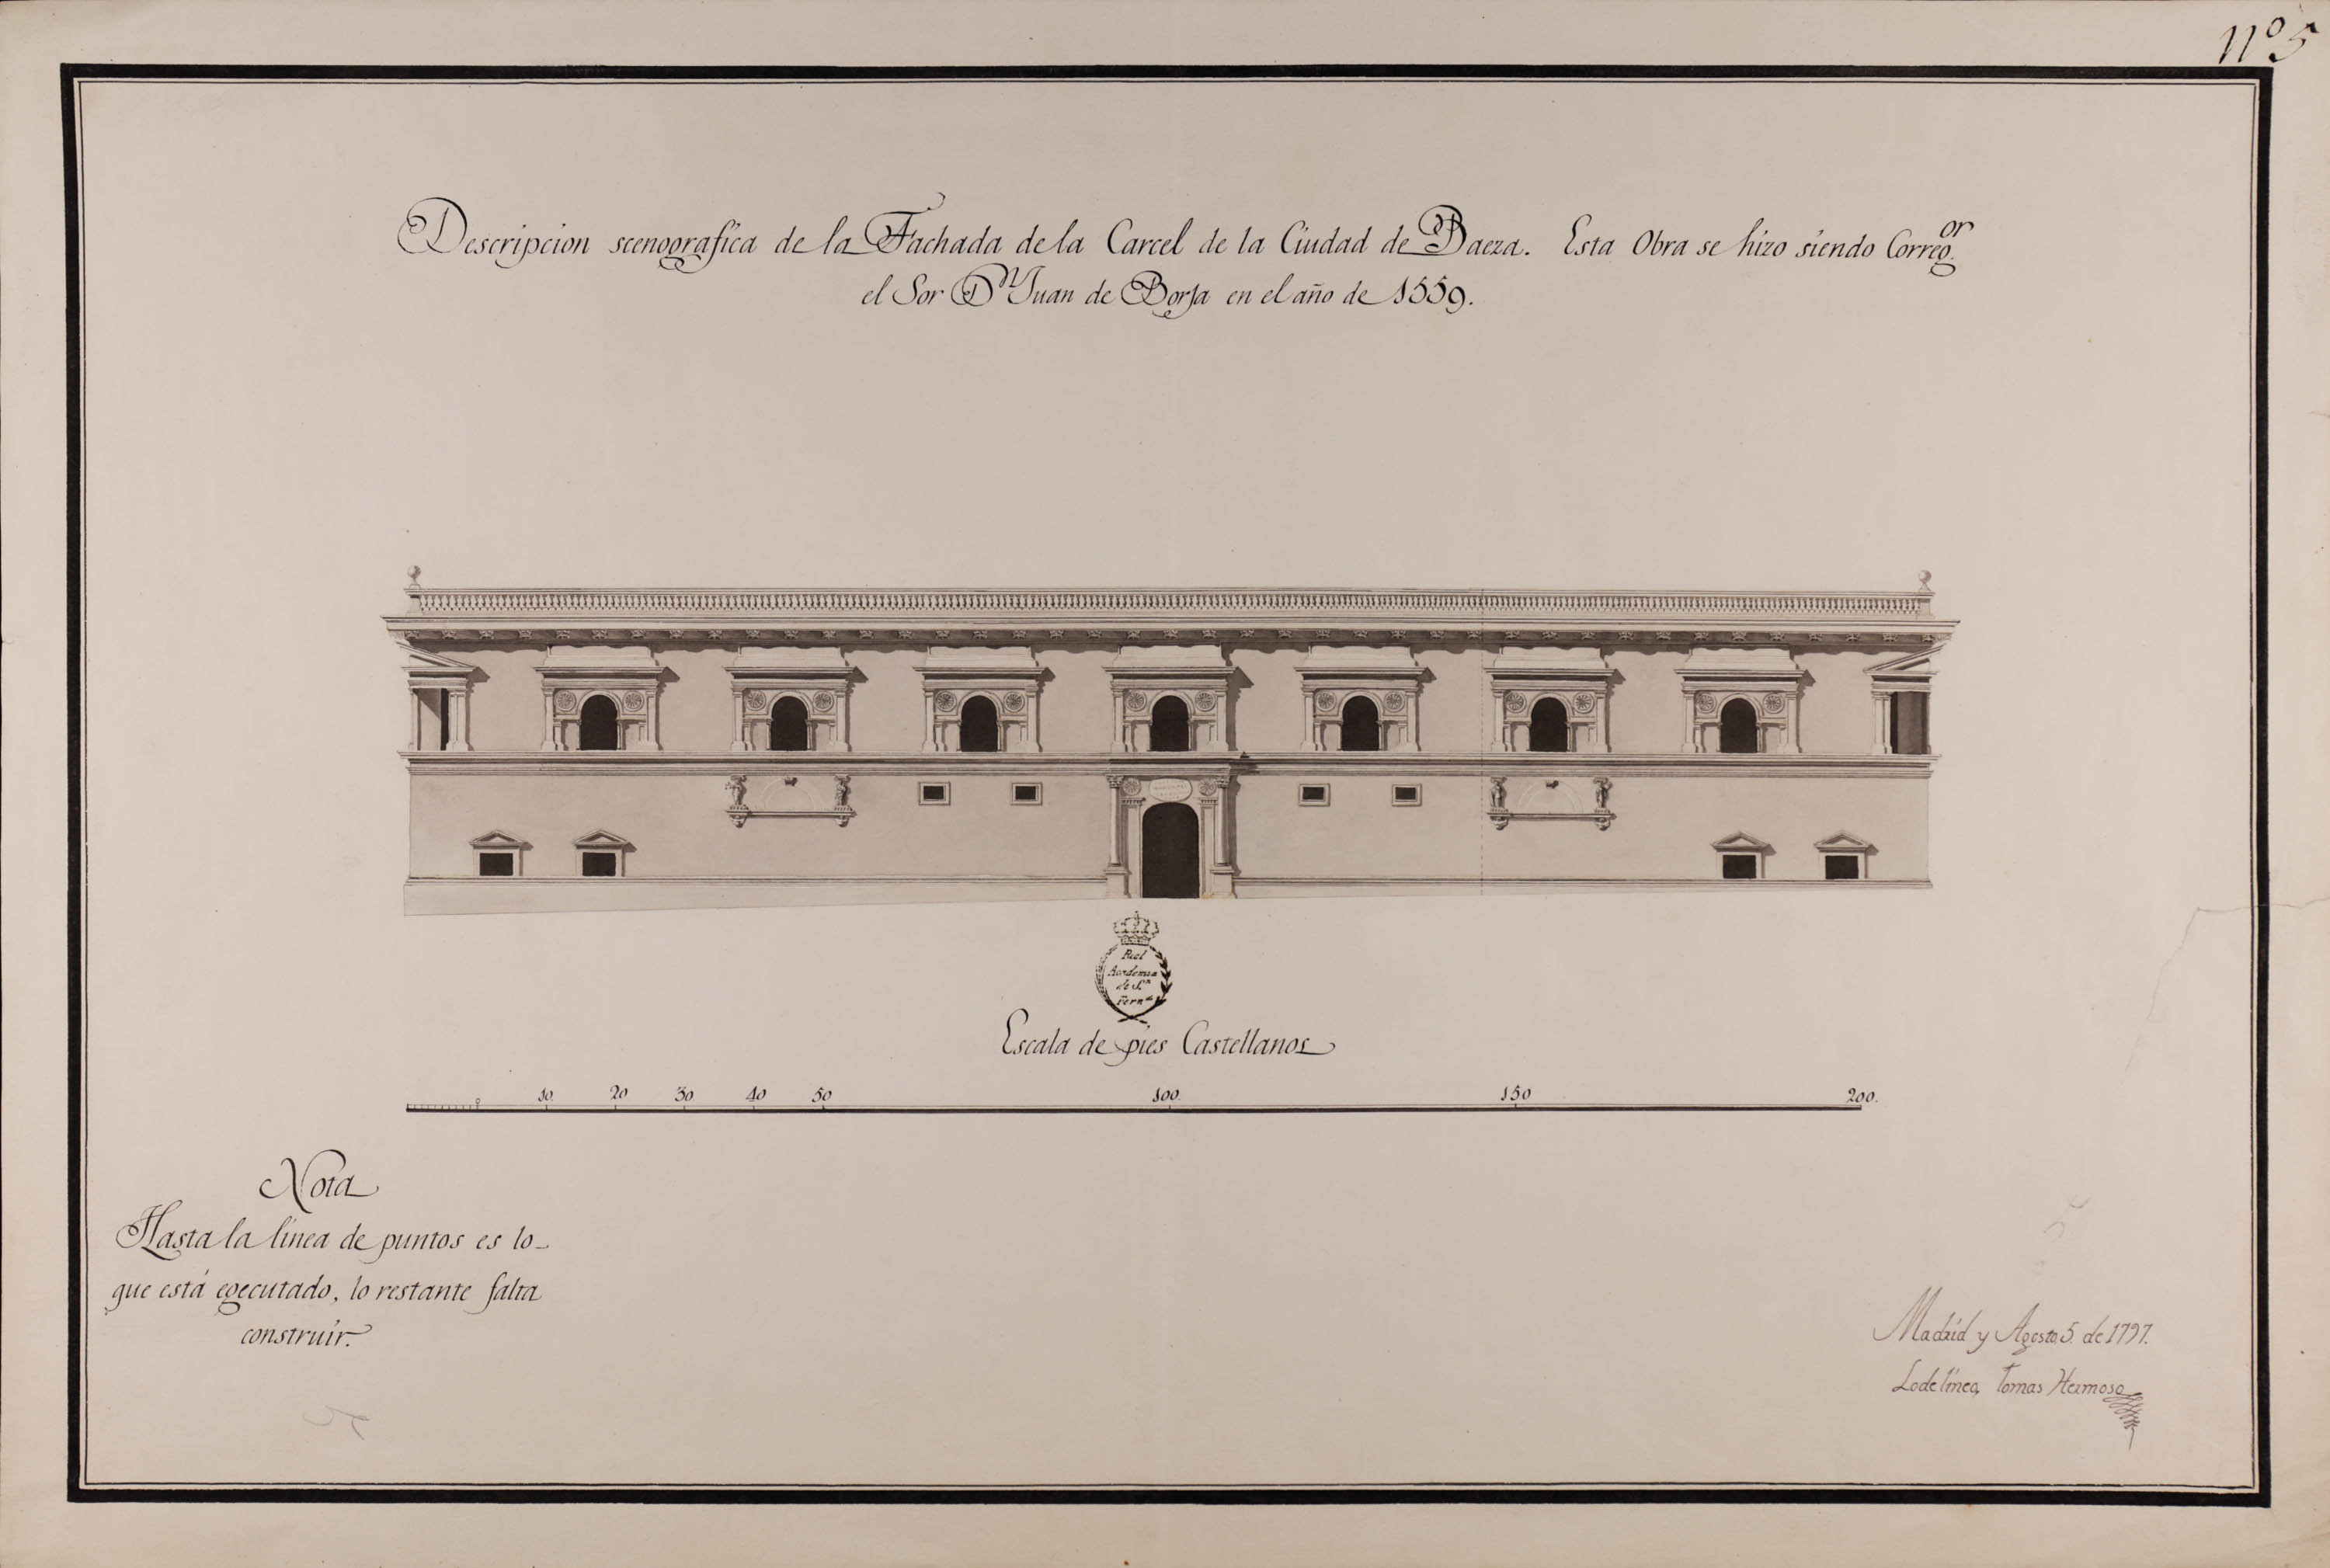 nº 5
Descripcion scenografica de la Fachada de la Carcel de la Ciudad de Baeza. Esta Obra se hizo siendo Correg.or
el Sor Dn Juan de Borja en el año de 1559.
Real
Academia
de S.n
Fern.do
Escala de pies Castellanos
0 10 20 30 40 50 100. 150 200.
Nota
Hasta la linea de puntos es lo
que está egecutado, lo restante falta
construir.
Madrid y Agosto 5 de 1797.
Lo delineó, Tomas Hermoso